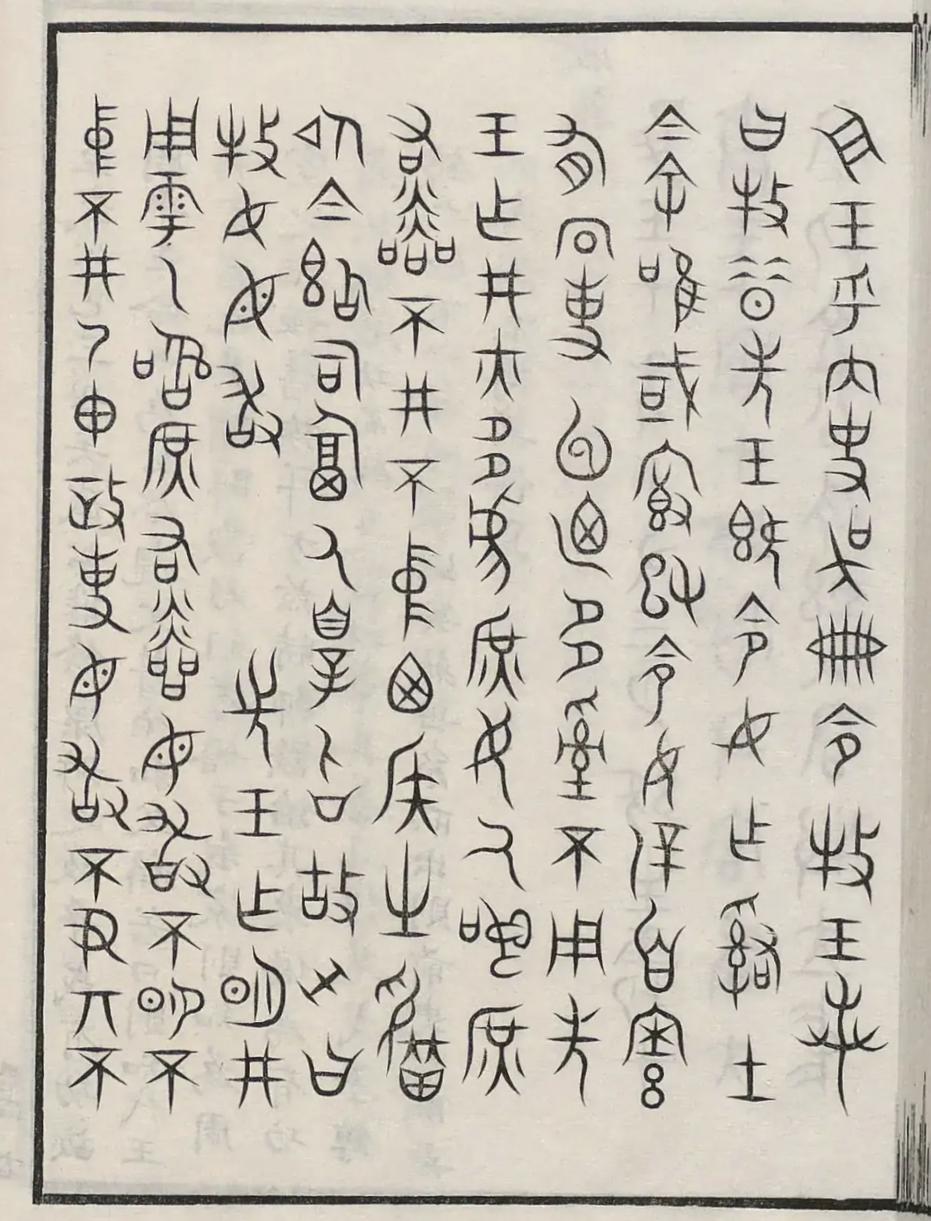 王乎內史吳冊令牧王若
曰牧昔先王既令女乍司土
今余唯或改令女辟百寮
有冋事包廼多亂不用先
王乍井亦多虐庶民厥訊庶
右鄰不井不中囟侯之
今司匐厥辠召故王曰
牧女毋敢先王乍明井
用雩乃訊庶右鄰毋敢不明不
中不井乃申政事毋敢不尹丌不